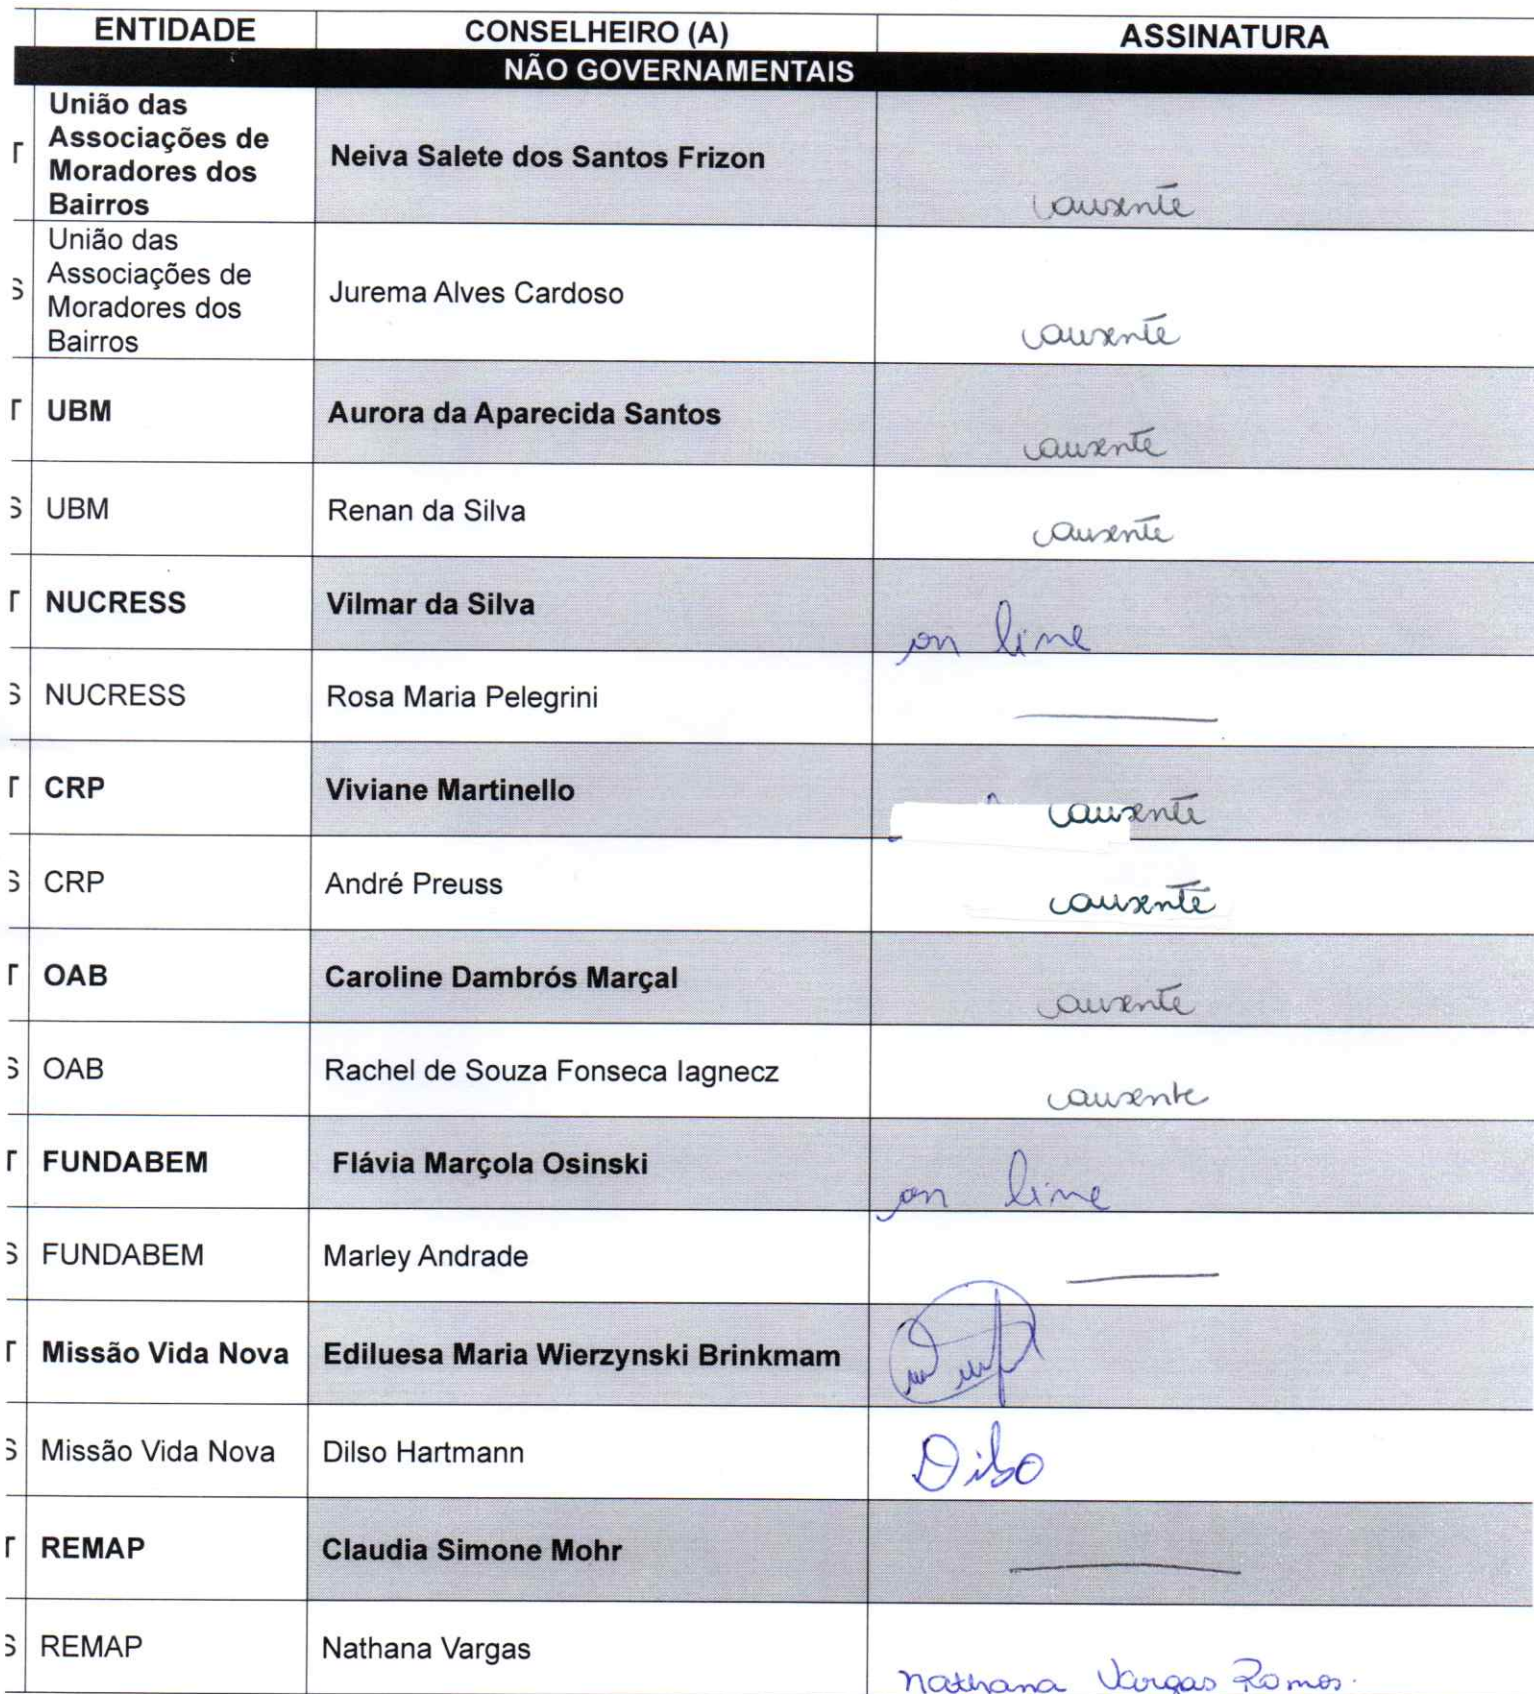 ENTIDADE CONSELHEIRO (A) ASSINATURA
NÃO GOVERNAMENTAIS
União das
Associações de
T Moradores dos Neiva Salete dos Santos Frizon ausente
Bairros
União das
Associações de
S Moradores dos Jurema Alves Cardoso ausente
Bairros
T UBM Aurora da Aparecida Santos ausente
S UBM Renan da Silva ausente
T NUCRESS Vilmar da Silva on line
S NUCRESS Rosa Maria Pelegrini
T CRP Viviane Martinello ausente
S CRP André Preuss ausente
T OAB Caroline Dambrós Marçal ausente
S OAB Rachel de Souza Fonseca Iagnecz ausente
T FUNDABEM Flávia Marçola Osinski on line
S FUNDABEM Marley Andrade
T Missão Vida Nova Ediluesa Maria Wierzynski Brinkmam
S Missão Vida Nova Dilso Hartmann Dilso
T REMAP Claudia Simone Mohr
S REMAP Nathana Vargas Nathana Vargas Ramos.